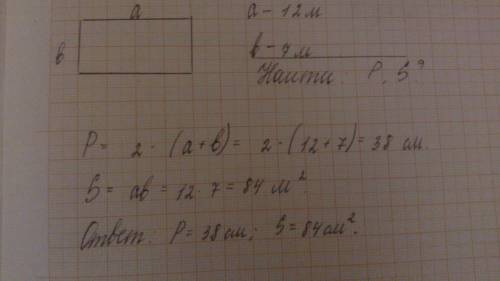 a
a - 12 м
в
в - 7 м
Найти: P, S?
P = 2 · (a + в) = 2 · (12 + 7) = 38 см.
S = aв = 12 · 7 = 84 м²
Ответ: P = 38 см; S = 84 см².